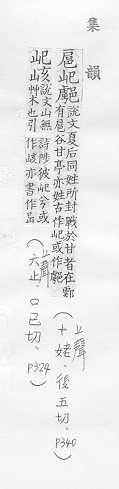 集韻
扈𡵆𨝘說文夏后同姓所封戰於甘者在鄠
有扈谷甘亭亦姓古作𡵆或作𨝘
(上聲
十姥、後五切、P340)
屺𡴭說文山無
艸木也引
詩陟彼屺兮或
作𡴭亦書作𡵆
(上聲
六止、口己切、P324)